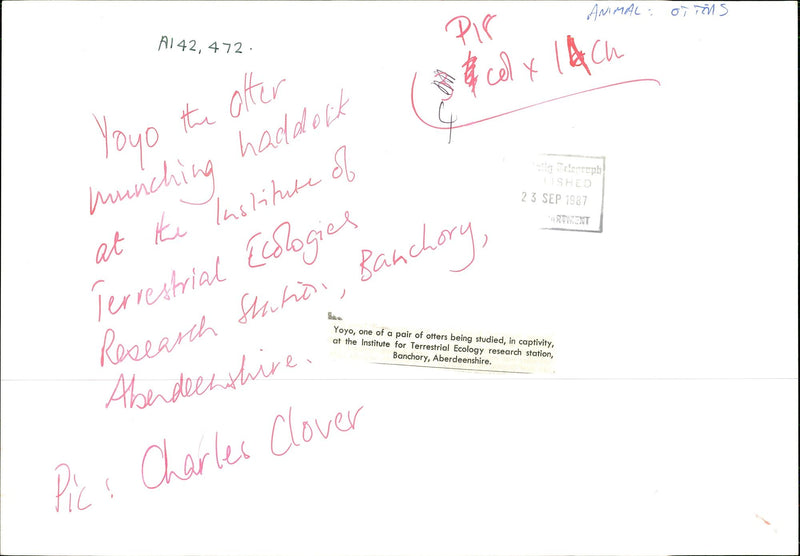 ANIMAL: OTTERS
A142,472.
P18
col x 1 Ch
4
Yoyo the otter
munching haddock
at the Institute of
Terrestrial Ecologies
Research Station, Banchory,
Aberdeenshire.
Pic: Charles Clover
Telegraph
ISHED
23 SEP 1987
ARTMENT
Yoyo, one of a pair of otters being studied, in captivity,
at the Institute for Terrestrial Ecology research station,
Banchory, Aberdeenshire.